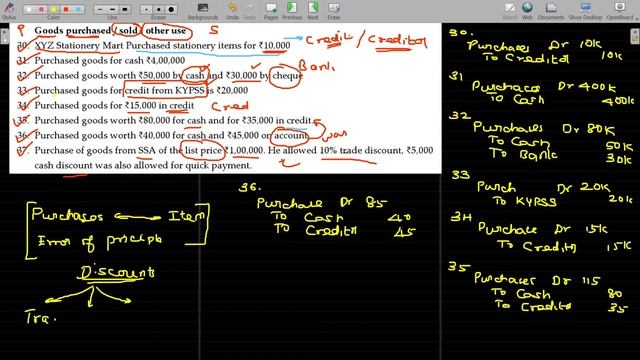 Mouse
Select
Text
Laser
Background
Undo
Redo
Pens
P Goods purchased (sold) other use S
30. XYZ Stationery Mart Purchased stationery items for ₹10,000
Credit / Creditor
31. Purchased goods for cash ₹4,00,000
Bank
32. Purchased goods worth ₹50,000 by cash and ₹30,000 by cheque
33. Purchased goods for credit from KYPSS is ₹20,000
34. Purchased goods for ₹15,000 in credit Cred
35. Purchased goods worth ₹80,000 for cash and for ₹35,000 in credit
36. Purchased goods worth ₹40,000 for cash and ₹45,000 on account
37. Purchase of goods from SSA of the list price ₹1,00,000. He allowed 10% trade discount, ₹5,000
cash discount was also allowed for quick payment.
Purchases Item
Error of principle
Discounts
Tra.
36.
Purchase Dr 85
To Cash 40
To Creditor 45
30.
Purchases Dr 10k
To Creditor 10k
31
Purchases Dr 400k
To Cash 400k
32
Purchases Dr 80k
To Cash 50k
To Bank 30k
33
Purch Dr 20k
To KYPSS 20k
34
Purchases Dr 15k
To Creditor 15k
35
Purchases Dr 115
To Cash 80
To Creditor 35